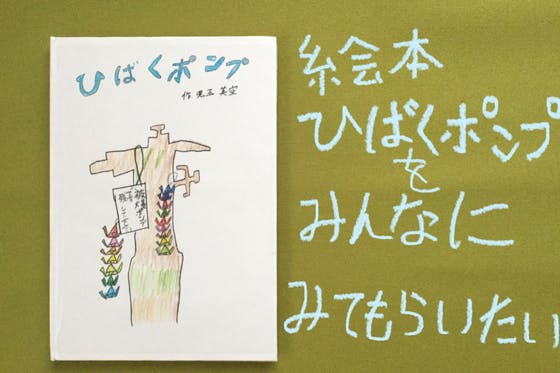 ひばくポンプ
作 児玉 美空
絵本
ひばくポンプ
を
みんなに
みてもらいたい